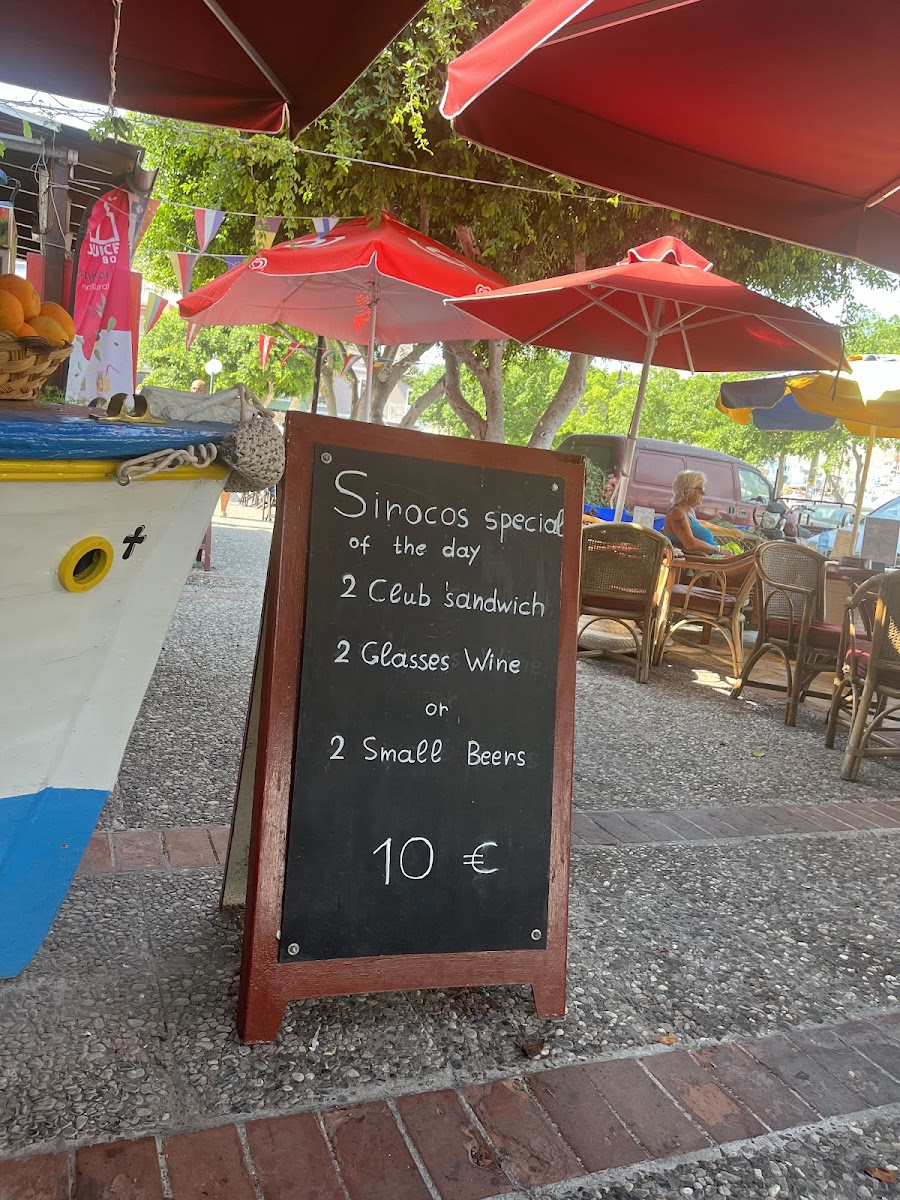 JUICE
BO
natural
Sirocos special
of the day
2 Club sandwich
2 Glasses Wine
or
2 Small Beers
10 €